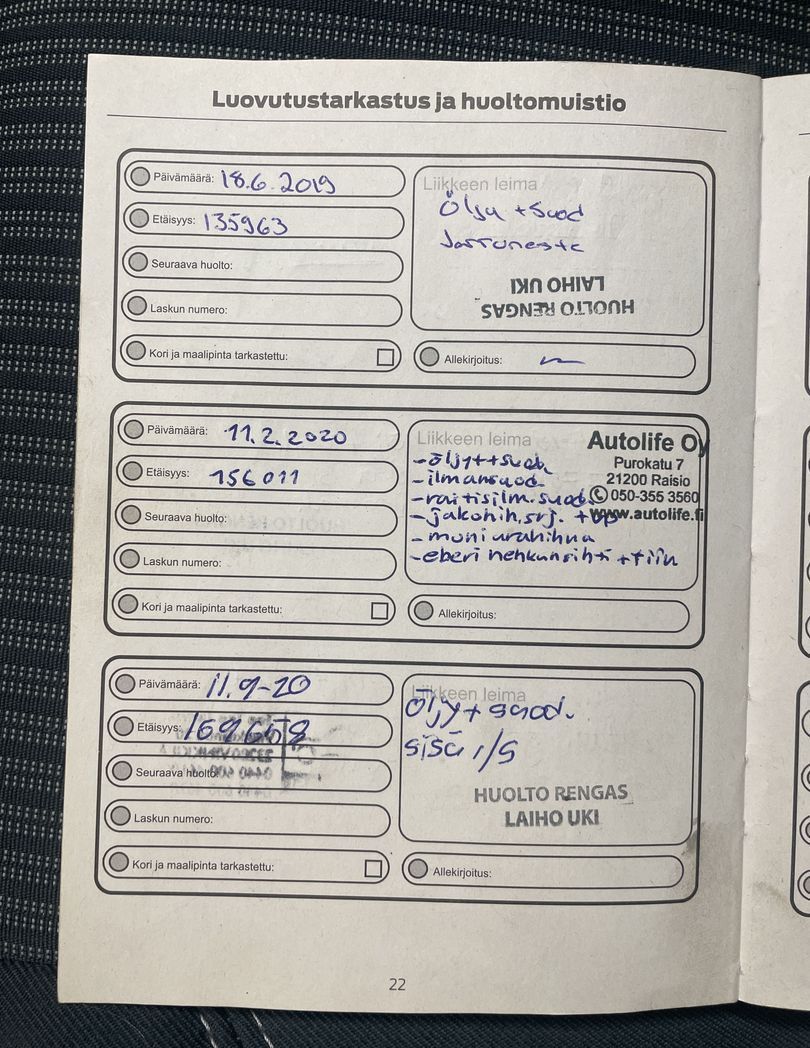 Luovutustarkastus ja huoltomuistio
Päivämäärä: 18.6.2019
Etäisyys: 135963
Seuraava huolto:
Laskun numero:
Kori ja maalipinta tarkastettu:
Liikkeen leima
Öljy + suod
Jarruneste
HUOLTO RENGAS
LAIHO UKI
Allekirjoitus:
Päivämäärä: 11.2.2020
Etäisyys: 156011
Seuraava huolto:
Laskun numero:
Kori ja maalipinta tarkastettu:
Liikkeen leima
Autolife Oy
Purokatu 7
21200 Raisio
050-355 3560
www.autolife.fi
-öljyt+suod.
-ilmansuod.
-raitisilm.suod.
-jakohih.srj. + vp
-moniurahihna
-eberi +tiiv
Allekirjoitus:
Päivämäärä: 11.9-20
Etäisyys: 169648
Seuraava huolto:
Laskun numero:
Kori ja maalipinta tarkastettu:
Liikkeen leima
Öljy + suod.
sisä r/s
HUOLTO RENGAS
LAIHO UKI
Allekirjoitus:
22